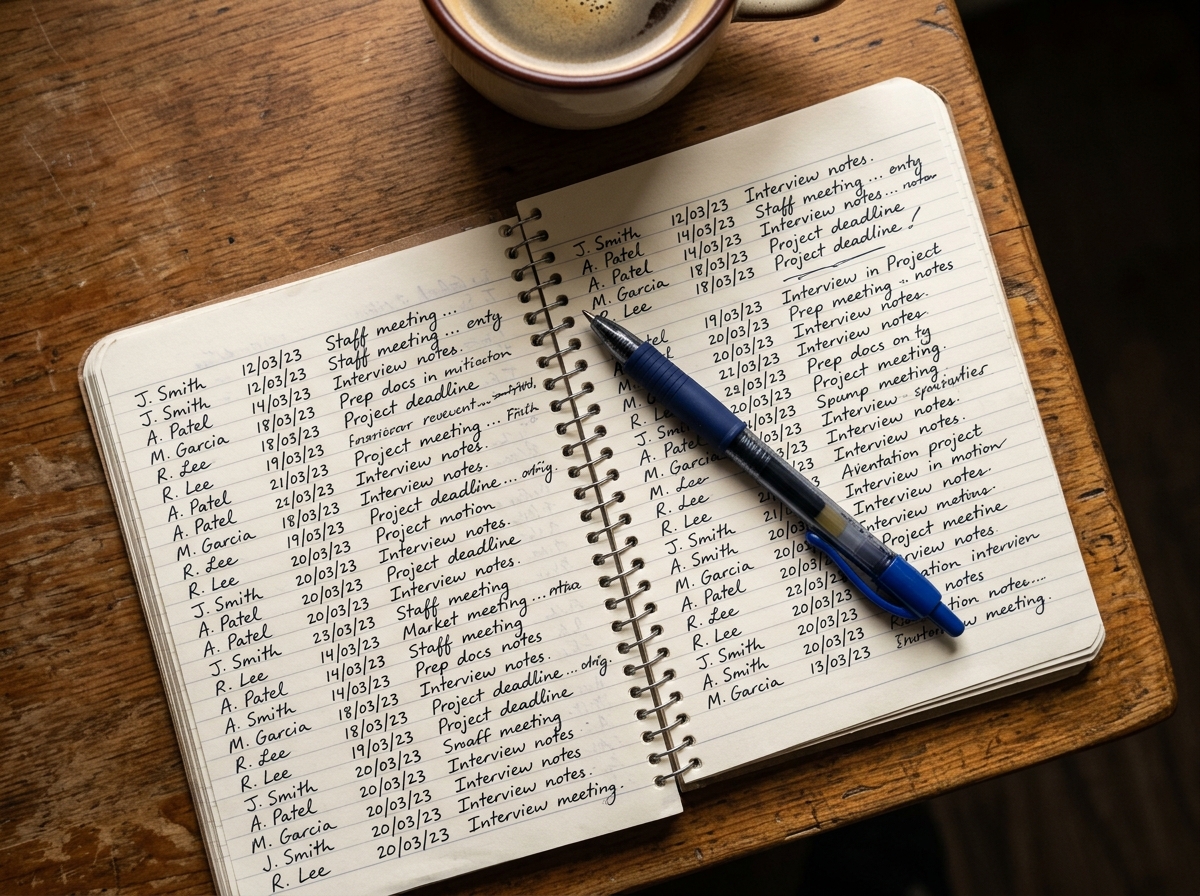 J. Smith 12/03/23 Staff meeting ...
J. Smith 12/03/23 Staff meeting ... enty
A. Patel 14/03/23 Interview notes.
M. Garcia 18/03/23 Prep docs in
R. Lee 18/03/23 Project deadline
R. Lee 19/03/23
A. Patel 21/03/23 Project meeting ... Finh
A. Patel 21/03/23 Interview notes.
M. Garcia 18/03/23 Interview notes.
R. Lee 19/03/23 Project deadline...
R. Lee 20/03/23 Project motion
J. Smith 20/03/23 Interview notes.
A. Patel 20/03/23 Project deadline
A. Patel 23/03/23 Interview notes.
J. Smith 14/03/23 Staff meeting
R. Lee 14/03/23 Market meeting...
A. Patel Staff meeting
A. Smith 18/03/23 Prep docs notes
M. Garcia 18/03/23 Interview notes.
R. Lee 19/03/23 Project deadline...
R. Lee 20/03/23 Project deadline
J. Smith 20/03/23 Smaff meeting
A. Patel 20/03/23 Interview notes
M. Garcia 20/03/23 Interview notes
J. Smith 20/03/23 Interview notes.
R. Lee Interview meeting.
J. Smith 12/03/23 Interview notes.
A. Patel 14/03/23 Staff meeting ... enty
A. Patel 14/03/23 Interview notes...
M. Garcia 18/03/23 Project deadline
Lee 18/03/23 Project deadline!
19/03/23 Interview in Project
20/03/23 Prep meeting .. notes
20/03/23 Interview notes.
21/03/23 Interview notes.
Prep docs on ty
20/03/23 Project meeting.
A. Patel Spump meeting.
M. Garcia Interview
M. Lee Interview notes.
R. Lee Interview notes.
R. Lee Aventation Project
J. Smith Interview in motion
A. Smith Interview notes.
M. Garcia
A. Patel Project meetine
R. Lee 22/03/23 notes
R. Lee 20/03/23
J. Smith 20/03/23 notes
A. Smith 20/03/23 notes....
M. Garcia 13/03/23 meeting.